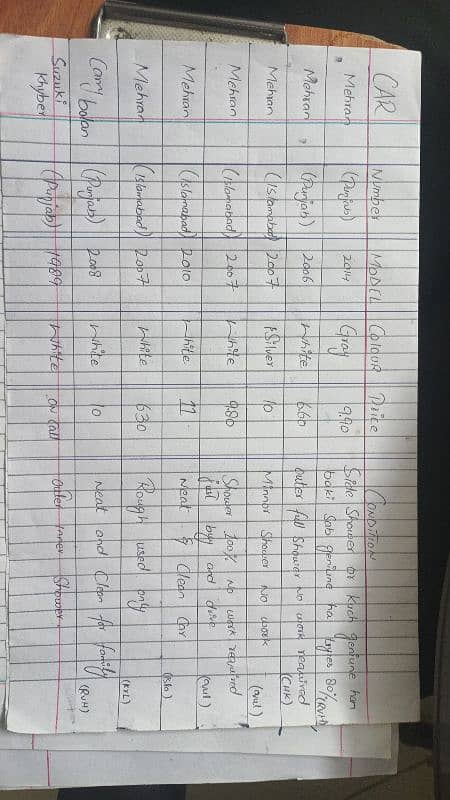 CAR Number MODEL Colour Price CONDITION
Mehran (Punjab) 2014 Gray 9.90 Side Shower or kuch geniune han
baki Sab geniune ha tayes 80% (RVH)
Mehran (Punjab) 2006 White 6.60 outer full Shower no work required
(CHK)
Mehran (Islamabad) 2007 Silver 10 Minnor Shower no work
Mehran (Islamabad) 2007 White 9.80 Shower 100% No work required
just buy and drive
Mehran (Islamabad) 2010 White 11 Neat & Clean Car
Mehran (Islamabad) 2007 White 6.30 Rough used only
Carry bolan (Punjab) 2008 White 10 neat and Clean for family
(RVH)
Suzuki (Punjab) 1989 White on call outer inner Shower
Khyber